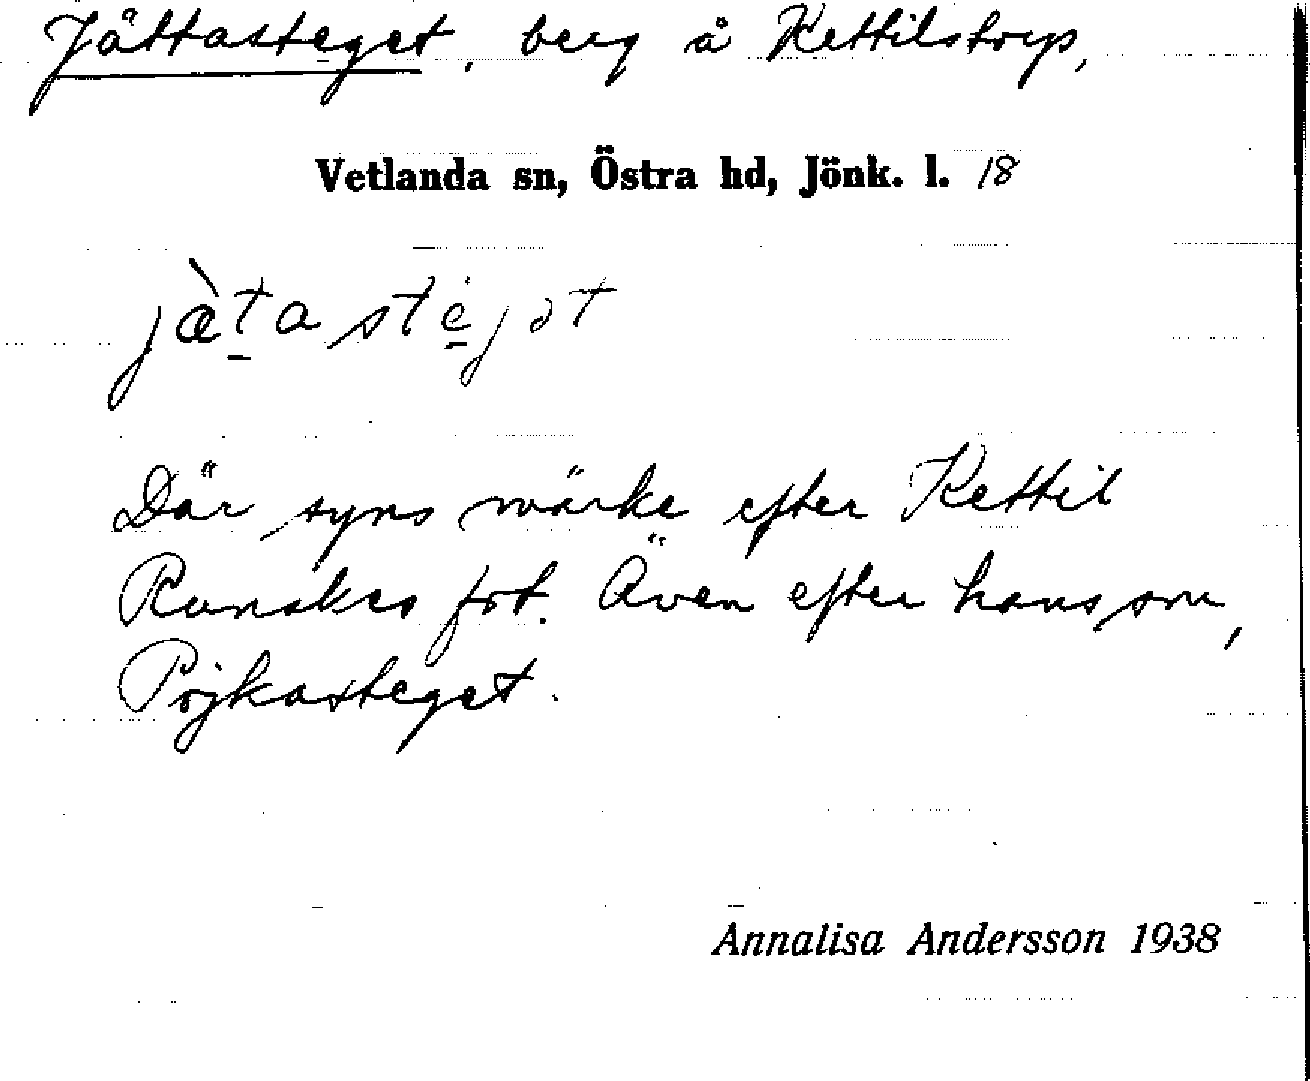 Jättasteget, berg å Kettilstorp,
Vetlanda sn, Östra hd, Jönk. l. 18
jæ̀tastėjət
Där syns märke efter Kettil
Runskes fot. Även efter hans son,
Pojkasteget.
Annalisa Andersson 1938